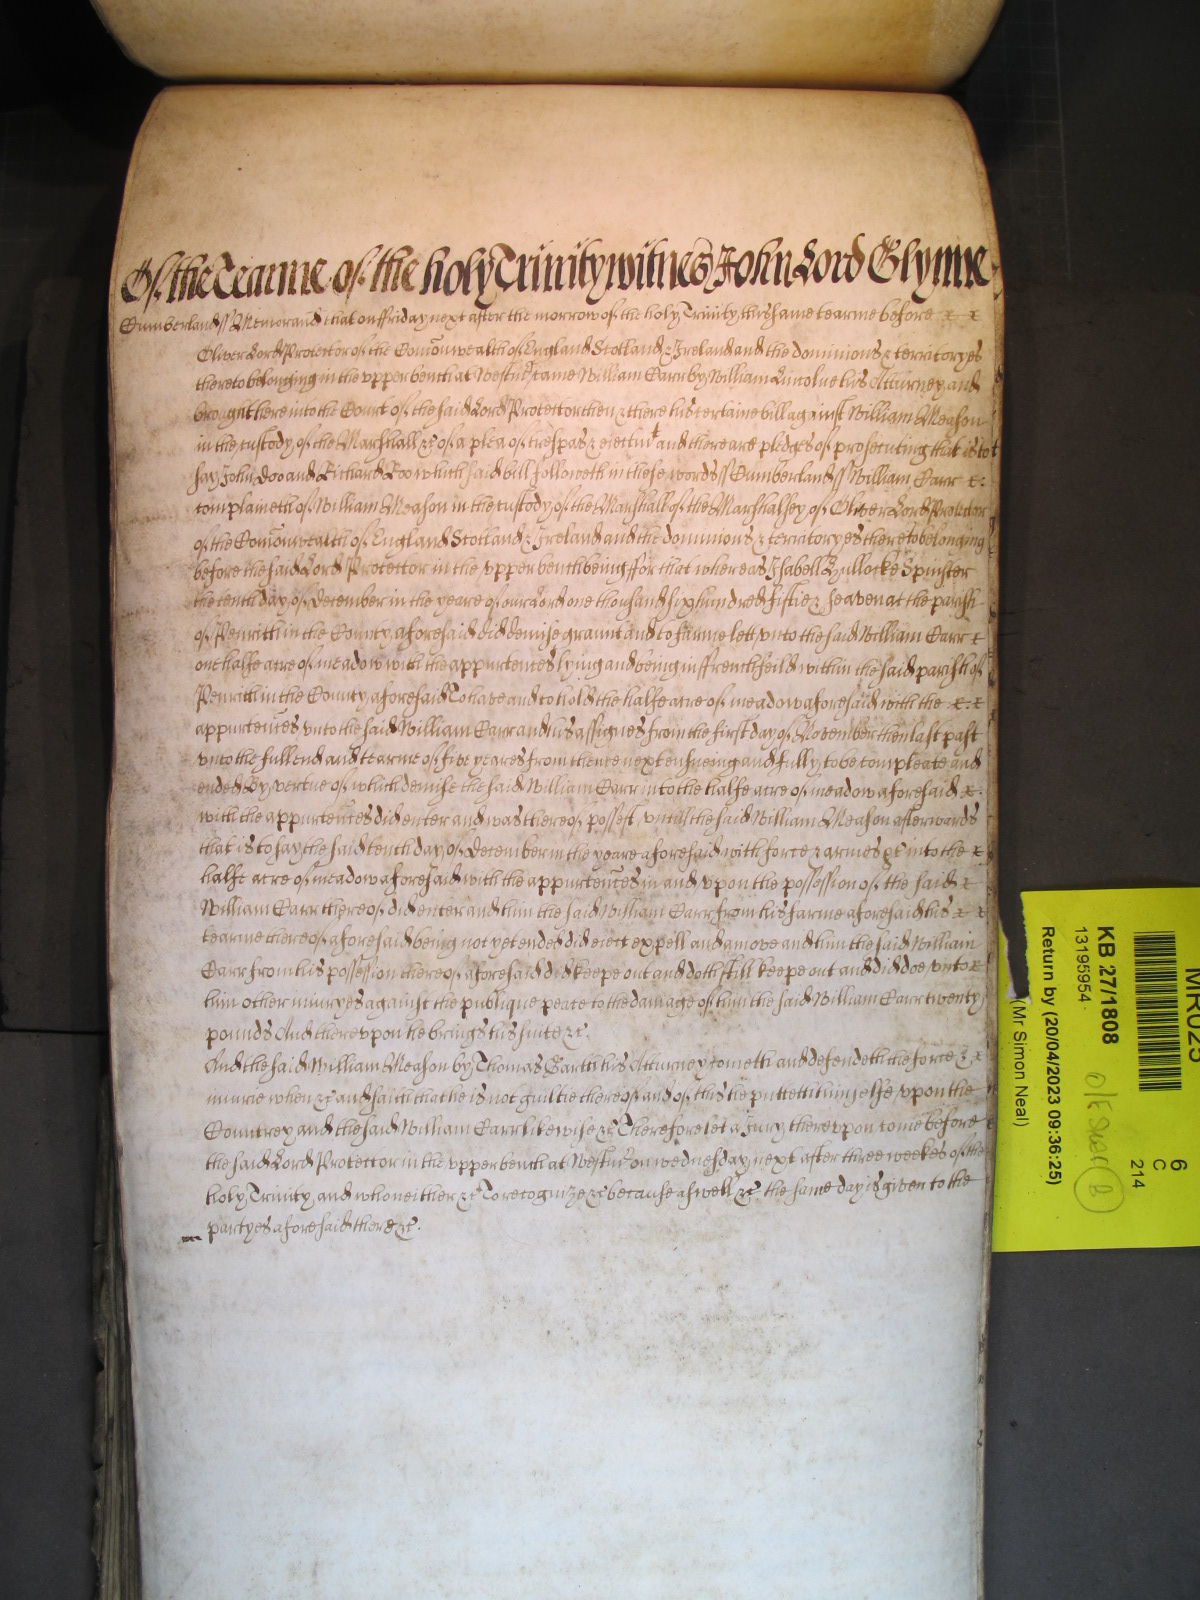 Of the Tearme of the holy Trinity witnes John Lord Glynne
Cumberland ss Memorand that on ffriday next after the morrow of the holy Trinity this same tearme before
Oliver Lord Protector of the Comõnwealth of England Scotland & Ireland and the dominions & territoryes
thereto belonging in the vpper bench at Westmr came William Carr by William Lincolne his Atturney and
brought here into the Court of the said Lord Protector then & there his certaine bill against William Meason
in the custody of the Marshall &c of a plea of trespas & eiectmt and there are pledges of prosecuting that is to
say John Doo and Richard Roo which said bill followeth in these words ss Cumberland ss William Carr
complaineth of William Meason in the custody of the Marshall of the Marshalsey of Oliver Lord Protector
of the Comõnwealth of England Scotland & Ireland and the dominions & territoryes thereto belonging
before the said Lord Protector in the vpper bench being ffor that whereas Isabell Bullocke Spinster
the tenth day of December in the yeare of our Lord one thousand six hundred fiftie & seaven at the parish
of Penrith in the County aforesaid did demise graunt and to farme lett vnto the said William Carr
one halfe acre of meadow with the appurtences lying and being in ffrenchfeild within the said parish of
Penrith in the County aforesaid To have and to hold the halfe acre of meadow aforesaid with the
appurtences vnto the said William Carr and his assignes from the first day of November then last past
vnto the full end and tearme of five yeares from thence next ensueing and fully to be compleate and
ended By vertue of which demise the said William Carr into the halfe acre of meadow aforesaid
with the appurtences did enter and was thereof possest vntill the said William Meason afterwards
that is to say the said tenth day of December in the yeare aforesaid with force & armes &c into the
halfe acre of meadow aforesaid with the appurtences in and vpon the possession of the said
William Carr thereof did enter and him the said William Carr from his farme aforesaid his
tearme thereof aforesaid being not yet ended did eiect expell and amove and him the said William
Carr from his possession thereof aforesaid did keepe out and doth still keepe out and did doe vnto
him other iniuryes against the publique peace to the damage of him the said William Carr twenty
pounds And therevpon he brings his suite &c.
And the said William Meason by Thomas Gartt his Atturney cometh and defendeth the force &
iniurie when &c and saith that he is not guiltie thereof and of this he putteth himselfe vpon the
Countrey and the said William Carr likewise &c Therefore let a Jury therevpon come before
the said Lord Protector in the vpper bench at Westmr on wednesday next after three weekes of the
holy Trinity and who neither &c To recognize &c because aswell &c the same day is given to the
partyes aforesaid there &c.
MR025
6
C
214
KB 27/1808
13195954
Return by (20/04/2023 09:36:25)
(Mr Simon Neal)